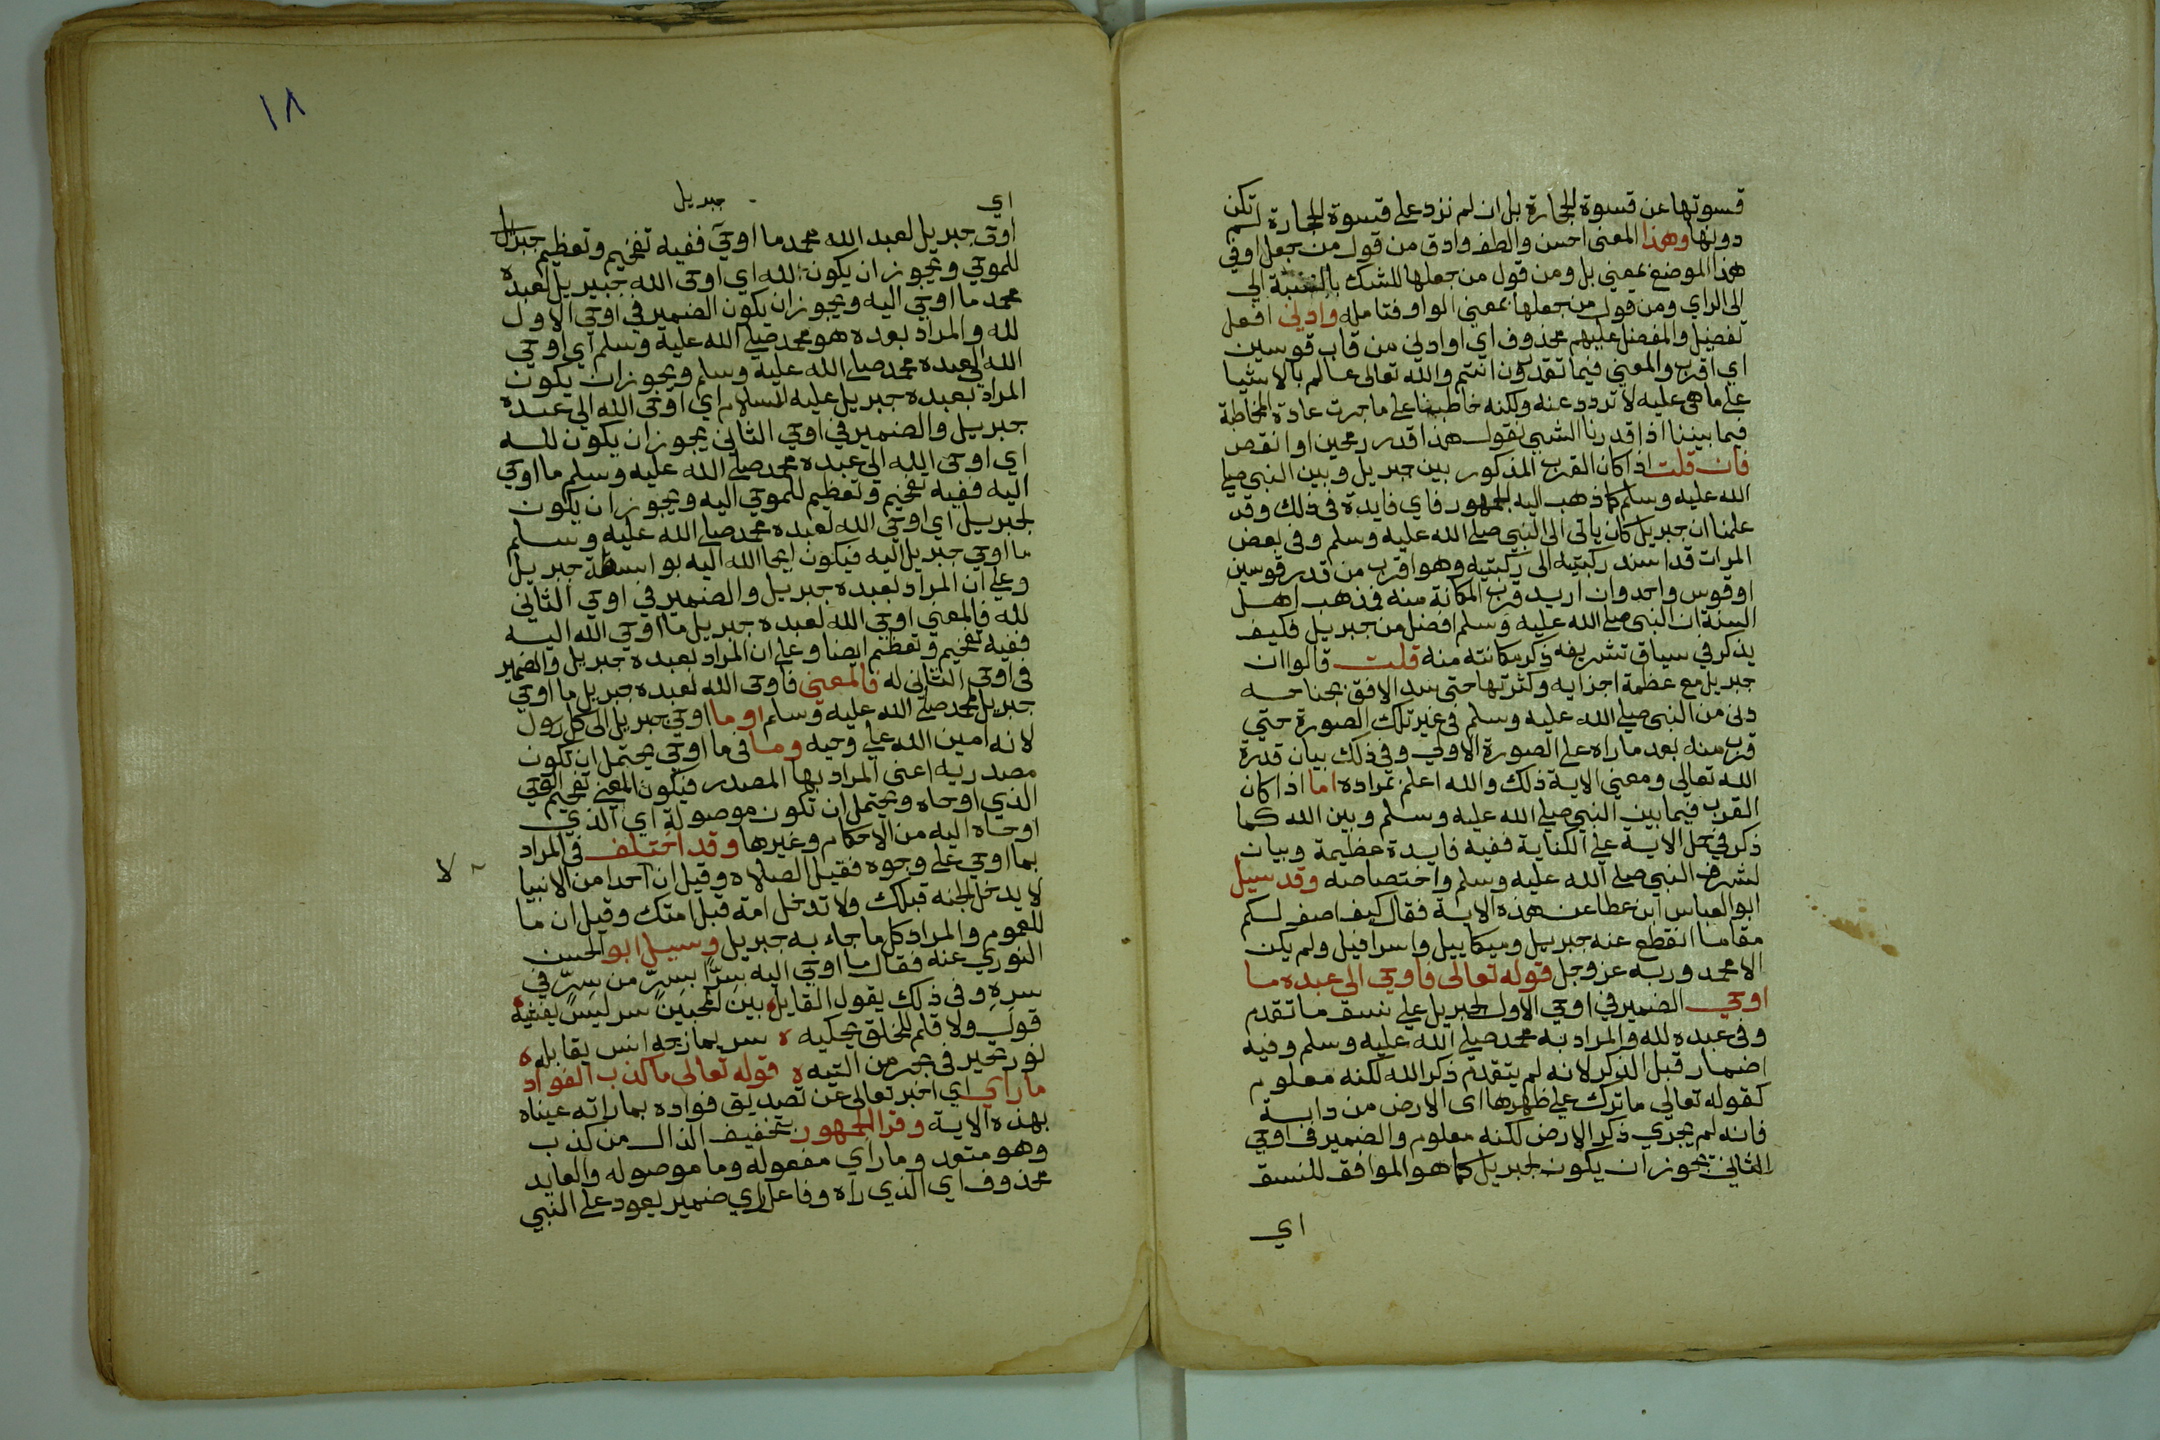 قسوتها عن قسوة الحجارة بل ان لم تزد على قسوة الحجارة لم تكن
دونها وهذا المعنى احسن والطف وادق من قول من جعل او في
هذا الموضع بمعني بل ومن قول من جعلها للشك بالنسبة الي
الى الراي ومن قول من جعلها بمعني الواو فتامله وادني افعل
تفضيل والمفضل عليهم محذوف اي او ادني من قاب قوسين
اي اقرب والمعني فيما تقدرون انتم والله تعالى عالم بالاشيا
على ما هي عليه لا تردد عنه ولكنه خاطبنا على ما جرت عادة المخاطبة
فيما بيننا اذا قدرنا الشي نقول هذا قدر رمحين او انقص
فان قلت اذا كان القرب المذكور بين جبريل وبين النبي صلي
الله عليه وسلم كما ذهب اليه الجمهور فاي فايدة في ذلك وقد
علمنا ان جبريل كان ياتي الى النبي صلي الله عليه وسلم وفي بعض
المرات قد اسند ركبتيه الى ركبتيه وهو اقرب من قدر قوسين
او قوس واحد وان اريد قرب المكانة منه فمذهب اهل
السنة ان النبي صلي الله عليه وسلم افضل من جبريل فكيف
يذكر في سياق تشريفه ذكر مكانته منه قلت قالوا ان
جبريل مع عظمة اجزايه وكثرتها حتى سد الافق بجناحه
دني من النبي صلي الله عليه وسلم في غير تلك الصورة حتي
قرب منه بعد ما راه على الصورة الاولي وفي ذلك بيان قدرة
الله تعالي ومعني الاية ذلك والله اعلم بمراده اما اذا كان
القرب فيما بين النبي صلي الله عليه وسلم وبين الله كما
ذكر في حل الاية على الكناية ففيه فايدة عظيمة وبيان
لشرف النبي صلي الله عليه وسلم واختصاصه وقد سيل
ابو العباس ابن عطا عن هذه الاية فقال كيف اصف لكم
مقاما انقطع عنه جبريل وميكاييل واسرافيل ولم يكن
الا محمد وربه عز وجل قوله تعالى فاوحي الى عبده ما
اوحي الضمير في اوحي الاول لجبريل على نسق ما تقدم
وفي عبده لله والمراد به محمد صلي الله عليه وسلم وفيه
اضمار قبل الذكر لانه لم يتقدم ذكر الله لكنه معلوم
كقوله تعالي ما ترك على ظهرها اي الارض من دابة
فانه لم يجري ذكر الارض لكنه معلوم والضمير في اوحي
الثاني يجوز ان يكون لجبريل كما هو الموافق للنسق
اي
١٨
اي جبريل
اوحى جبريل لعبد الله محمد ما اوحي ففيه تفخيم وتعظيم جبريل
للموحي ويجوز ان يكون لله اي اوحى الله جبيريل لعبده
محمد ما اوحي اليه ويجوز ان يكون الضمير في اوحي الاول
لله والمراد بعبده هو محمد صلي الله عليه وسلم اي اوحي
الله الي عبده محمد صلي الله عليه وسلم ويجوز ان يكون
المراد بعبده جبريل عليه السلام اي اوحى الله الي عبده
جبريل والضمير في اوحي الثاني يجوز ان يكون لله
اي اوحى الله الي عبده محمد صلي الله عليه وسلم ما اوحي
اليه ففيه تفخيم وتعظيم للموحي اليه ويجوز ان يكون
لجبريل اي اوحي الله لعبده محمد صلي الله عليه وسلم
ما اوحي جبريل اليه فيكون ايحا الله اليه بواسطة جبريل
وعلي ان المراد بعبده جبريل والضمير في اوحي الثاني
لله فالمعني اوحي الله لعبده جبريل ما اوحي الله اليه
ففيه تفخيم وتعظيم ايضا وعلى ان المراد بعبده جبريل والضمير
في اوحي الثاني له فالمعني فاوحى الله لعبده جبريل ما اوحي
جبريل لمحمد صلي الله عليه وسلم او ما اوحي جبريل الى كل رسول
لانه امين الله علي وحيه وما في ما اوحي يحتمل ان تكون
مصدرية اعني المراد بها المصدر فيكون المعني تفخيم الوحي
الذي اوحاه ويحتمل ان تكون موصولة اي الذي
اوحاه اليه من الاحكام وغيرها وقد اختلف في المراد
بما اوحي على وجوه فقيل الصلاه وقيل ان احدا من الانبيا
لا يدخل الجنه قبلك ولا تدخل امة قبل امتك وقيل ان ما
للعموم والمراد كل ما جاء به جبريل وسيل ابو الحسن
النوري عنه فقال ما اوحي اليه سرًّا بسرٍّ من سرٍّ في
سره وفي ذلك يقول القايل بين المحبين سر ليس يفشيه
قول ولا قلم للخلق يحكيه ه سر يمازجه انس يقابله ه
نور تحير في بحر من التيه ه قوله تعالى ما كذب الفواد
ما راي اي اخبر تعالى عن تصديق فواده بما راته عيناه
بهذه الاية وقرا الجمهور بتخفيف الذال من كذب
وهو متعد وما راي مفعوله وما موصوله والعايد
محذوف اي الذي راه وفاعل راي ضمير يعود على النبي